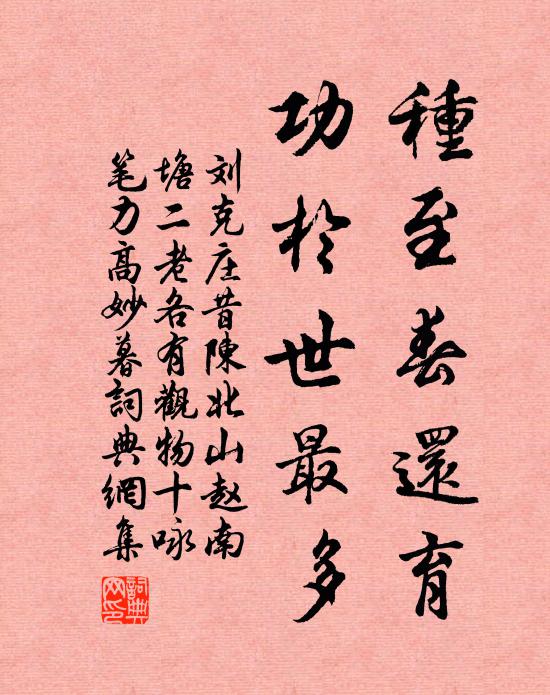 種至春還育
功於世最多
刘克庄昔陳北山赵南
塘二老各有觀物十咏
笔力高妙暮詞典網集
詞典網印